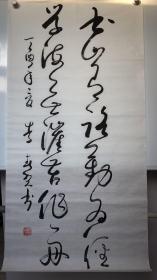 书山有路勤为径
学海无涯苦作舟
丁酉年夏
书